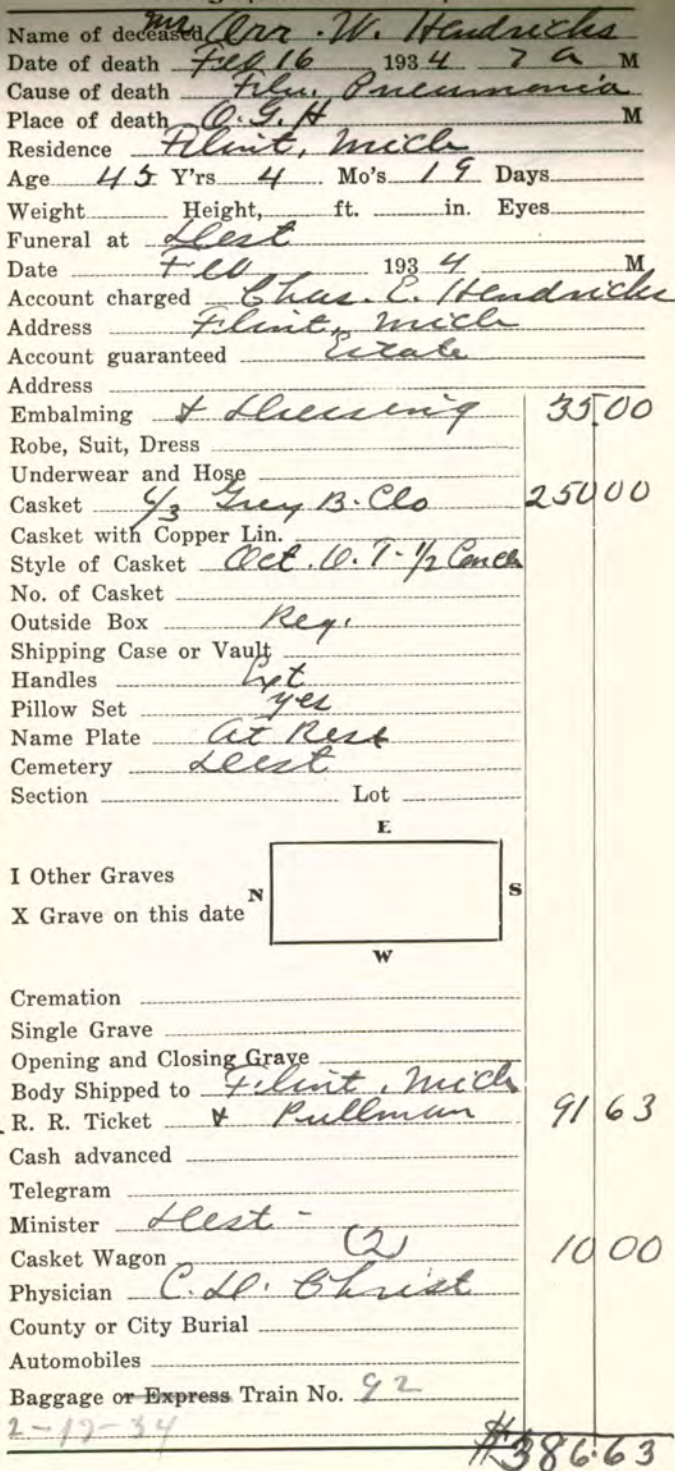 Name of deceased Mr. Orr. W. Hendricks
Date of death Feb 16 1934 7 a M
Cause of death Flu. Pneumonia
Place of death O.G.H M
Residence Flint, Mich
Age 45 Y'rs 4 Mo's 19 Days
Weight Height, ft. in. Eyes
Funeral at Dest
Date Feb 1934 M
Account charged Chas. E. Hendricks
Address Flint, Mich
Account guaranteed Estate
Address
Embalming & Dressing 35.00
Robe, Suit, Dress
Underwear and Hose
Casket 6/3 Grey B. Clo 250 00
Casket with Copper Lin.
Style of Casket Oct. O. T- 1/2 Couch
No. of Casket
Outside Box Reg.
Shipping Case or Vault
Handles Ext
Pillow Set yes
Name Plate At Rest
Cemetery Dest
Section Lot
E
I Other Graves
N S
X Grave on this date
W
Cremation
Single Grave
Opening and Closing Grave
Body Shipped to Flint, Mich
R. R. Ticket & Pullman 91 63
Cash advanced
Telegram
Minister Dest -
Casket Wagon (2) 10 00
Physician C. D. Christ
County or City Burial
Automobiles
Baggage or Express Train No. 92
2-17-34
$386.63